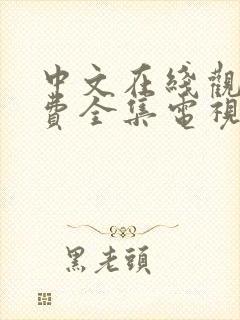 中文在綫觀
費全集電視
黑老頭